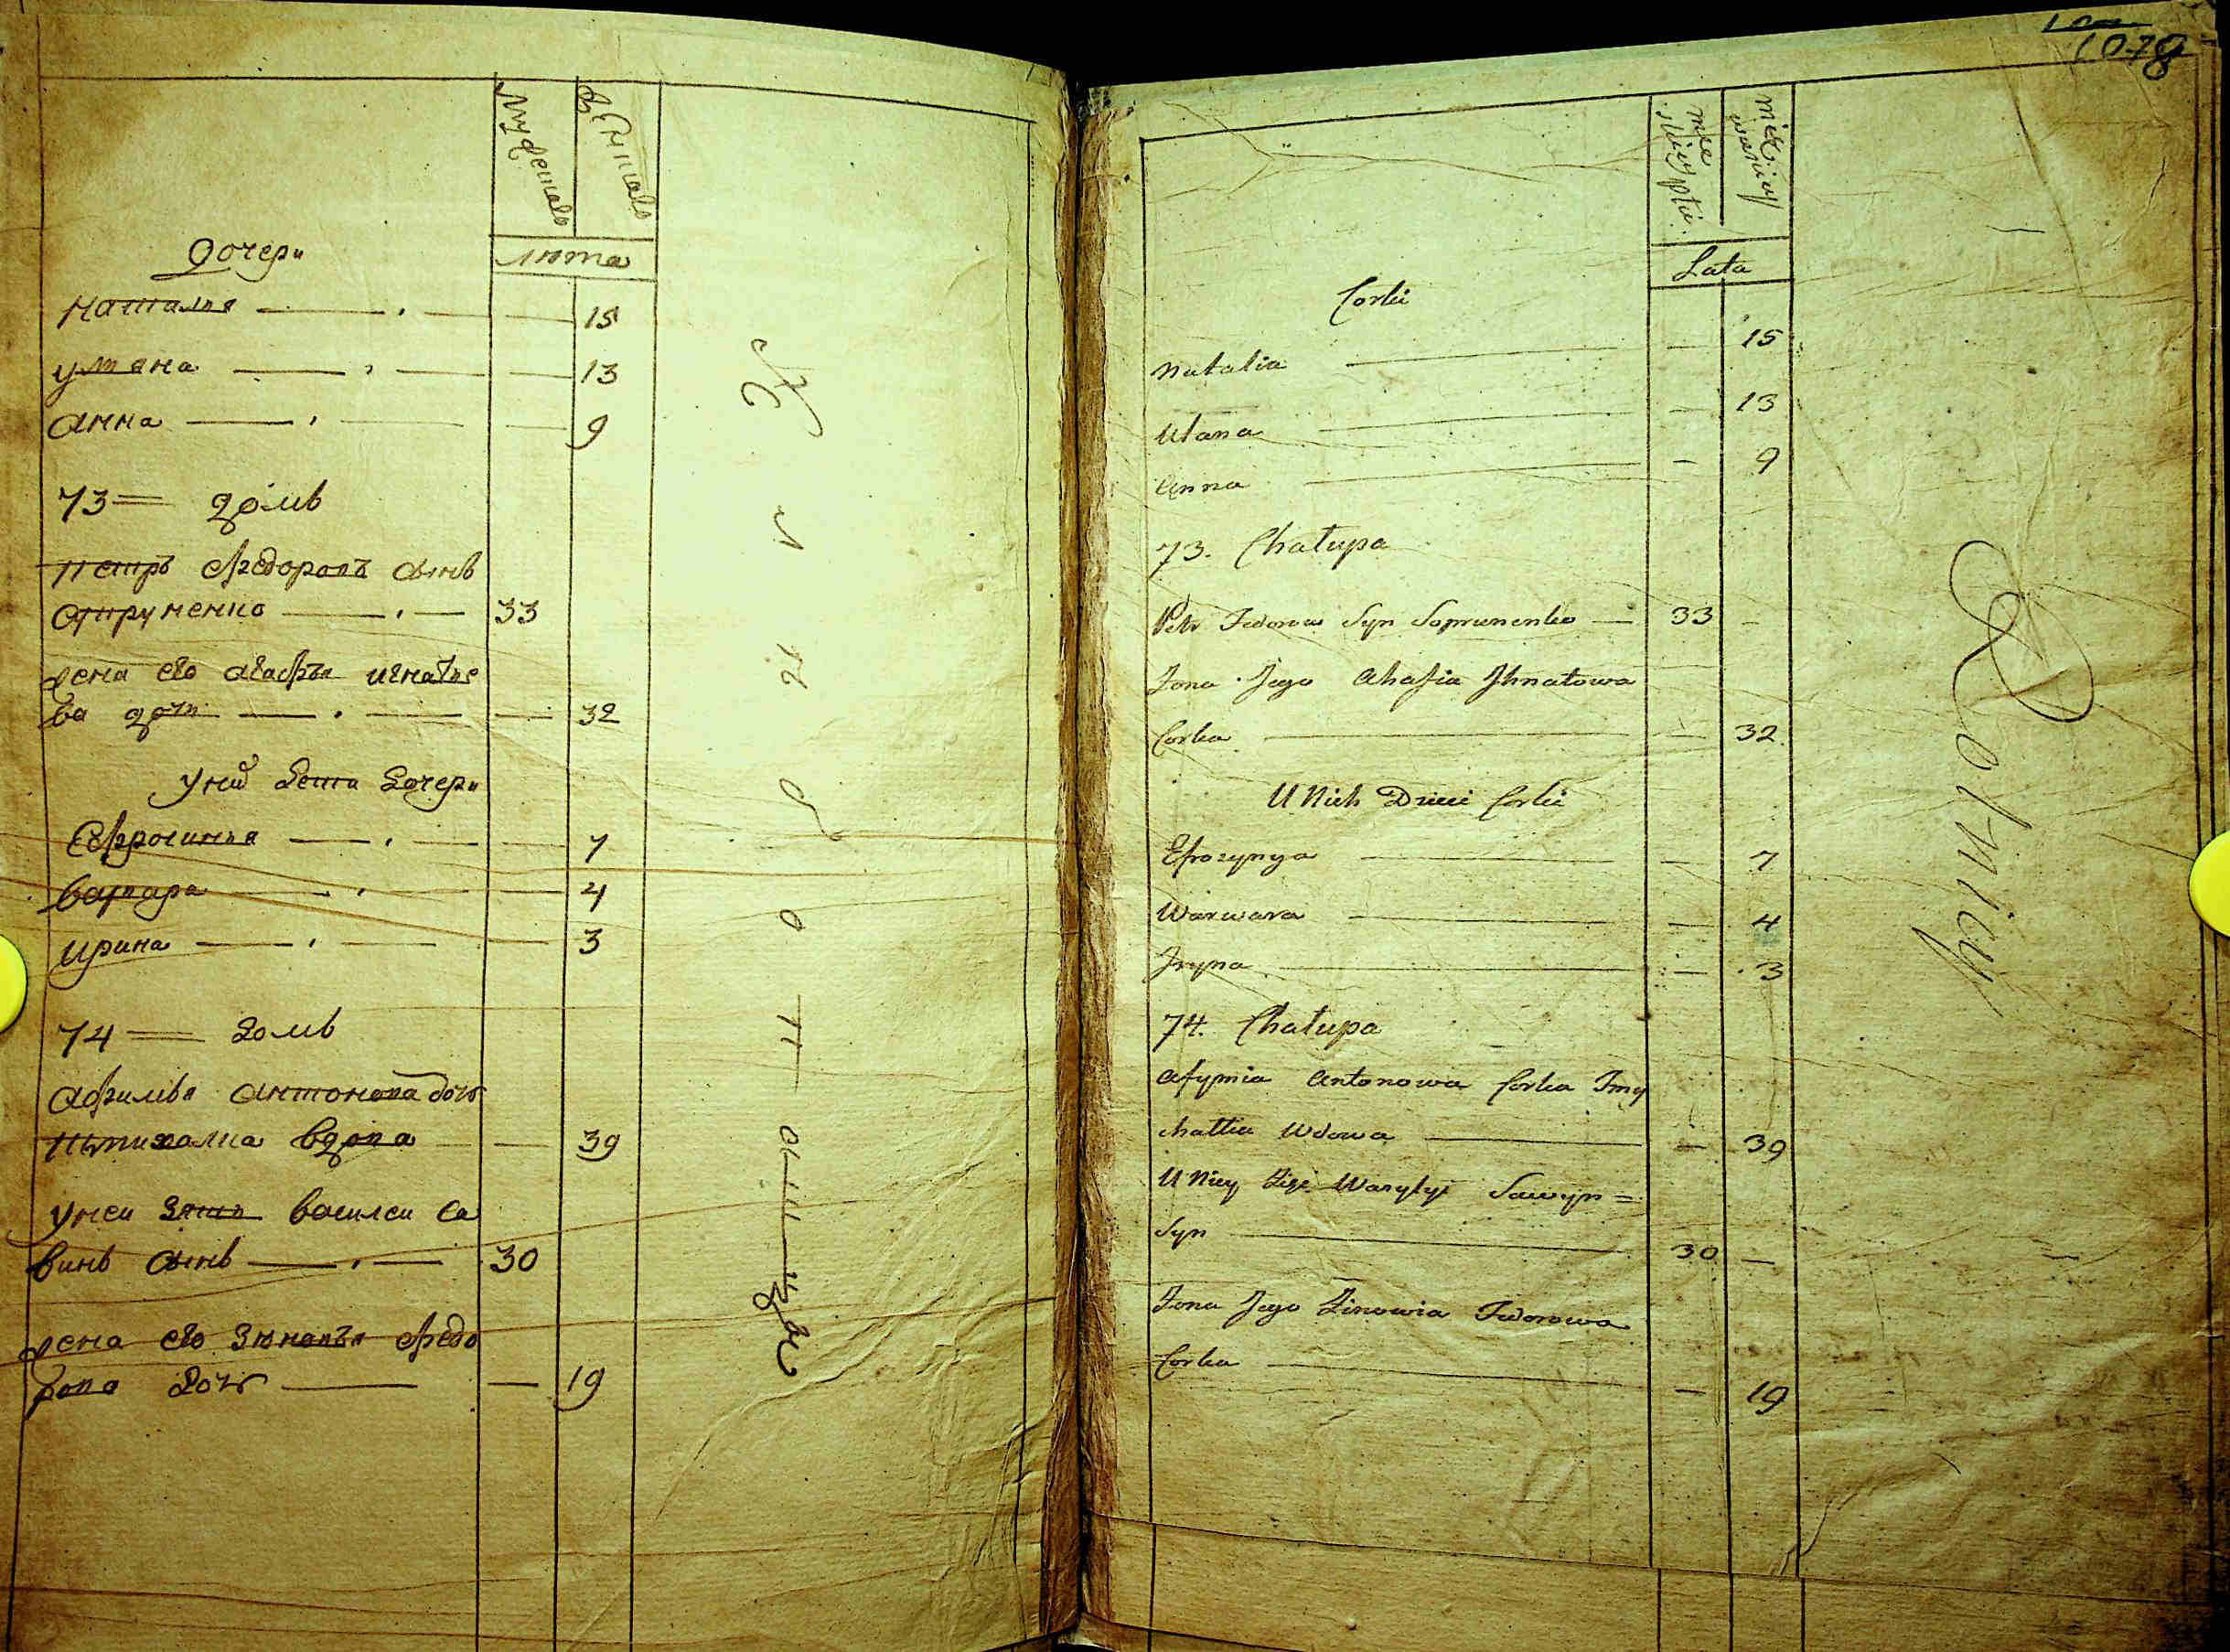 Дочери
лѣта
Наталѧ — 15
Уляна — 13
Анна — 9
73 = домъ
Петръ Федоровъ сынъ
Супруненко — 33
жена его агафья игнатье
ва дочь — 32
у нихъ дети дочери
Ефросинья — 7
варвара — 4
ирина — 3
74 = домъ
афимья антонова дочь
вдова — 39
у неи зять василеи са
винъ сынъ — 30
жена его зѣновья федо
рова дочь — 19
1078
męzkiey płci
Lata
Corki
Natalia — 15
Ulana — 13
Anna — 9
73. Chałupa
Petr Fedorow Syn Soprunenko — 33 —
Żona Jego Ahafia Jhnatowa
Corka — 32
U Nich Dzieci Corki
Efrozynya — 7
Warwara — 4
Jryna — 3
74. Chałupa
Afymia Antonowa Corka
Wdowa — 39
U Niey Zięć Wasylyi Sawyn =
Syn — 30 —
Żona Jego Zinowia Fedorowa
Corka — 19
Rolnicy